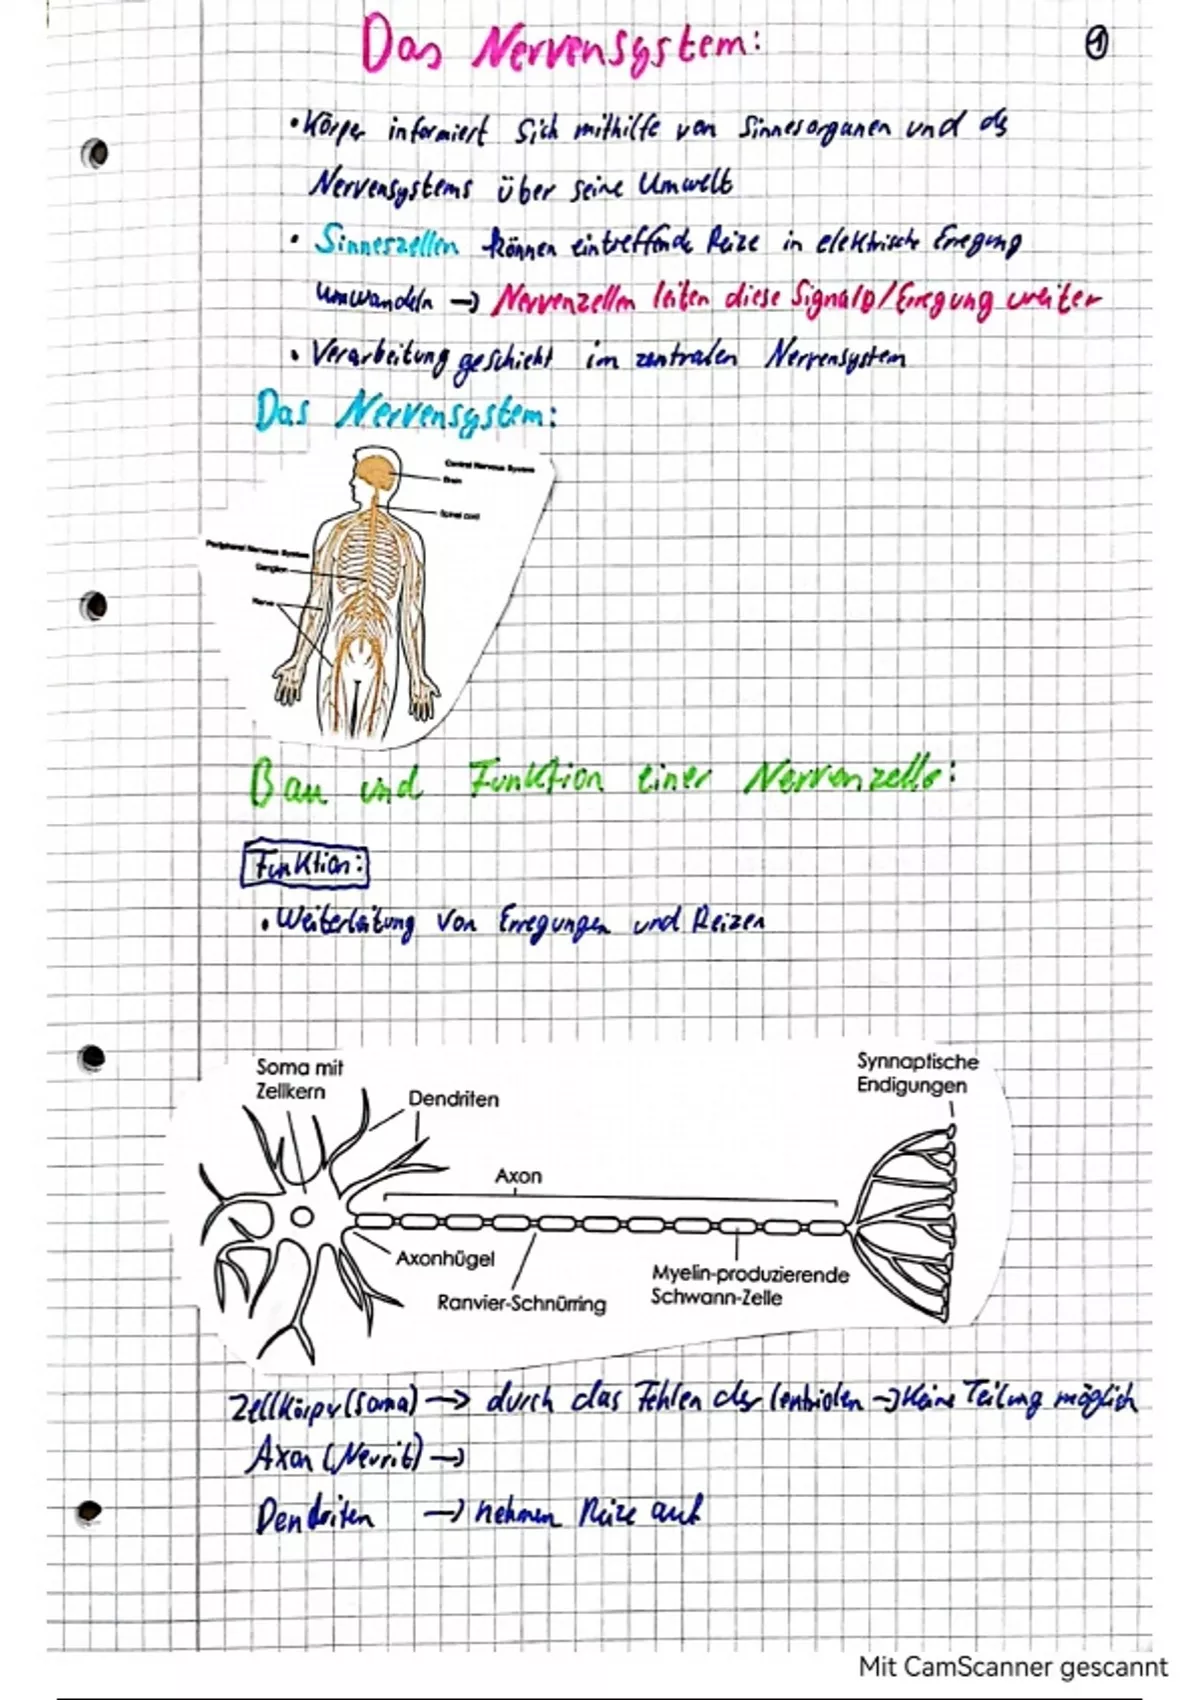 Das Nervensystem:
1
• Körper informiert sich mithilfe von Sinnesorganen und ds
Nervensystems über seine Umwelt
• Sinneszellen können eintreffende Reize in elektrische Erregung
umwandeln → Nervenzellen leiten diese Signale/Erregung weiter
• Verarbeitung geschieht im zentralen Nervensystem
Das Nervensystem:
Central Nervous System
Brain
Spinal cord
Peripheral Nervous System
Ganglion
Nerve
Bau und Funktion einer Nervenzelle:
Funktion:
• Weiterleitung von Erregungen und Reizen
Soma mit
Zellkern
Dendriten
Synnaptische
Endigungen
Axon
Axonhügel
Ranvier-Schnürring
Myelin-produzierende
Schwann-Zelle
Zellkörper (Soma) → durch das Fehlen der Centriolen → keine Teilung möglich
Axon (Neurit) →
Dendriten → nehmen Reize auf
Mit CamScanner gescannt